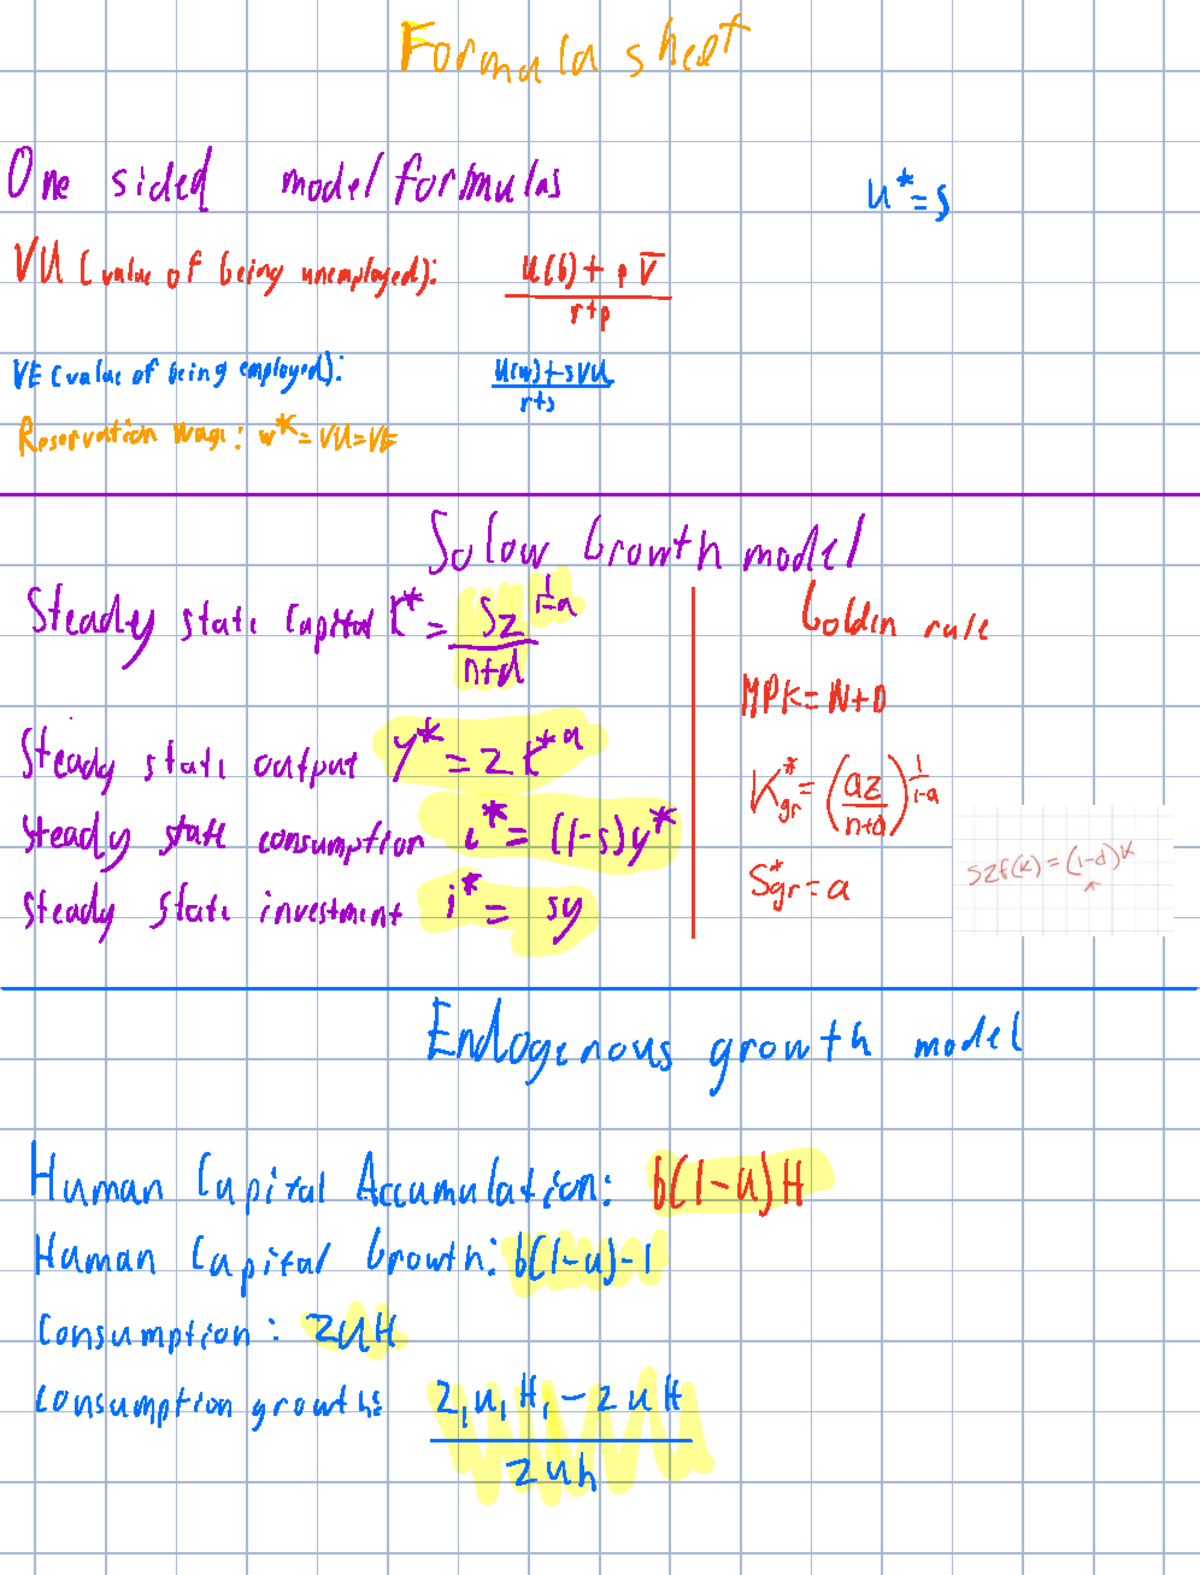 Formula sheet
One sided model formulas
u* = s
VU (value of being unemployed): u(b) + p V̄ / r+p
VE (value of being employed): u(w)+sVU / r+s
Reservation wage: w* = VU=VE
Solow Growth model
Steady state capital k* = sz / n+d ^ 1/1-a
Steady state output y* = z k*^a
Steady state consumption c* = (1-s)y*
Steady state investment i* = sy
Golden rule
MPK = N+D
K*gr = (az / n+d)^ 1/1-a
S*gr = a
szf(k) = (1-d)k
^
Endogenous growth model
Human Capital Accumulation: b(1-u)H
Human Capital Growth: b(1-u)-1
Consumption: zuH
Consumption growth: z₁u₁H₁ - zuH / zuh